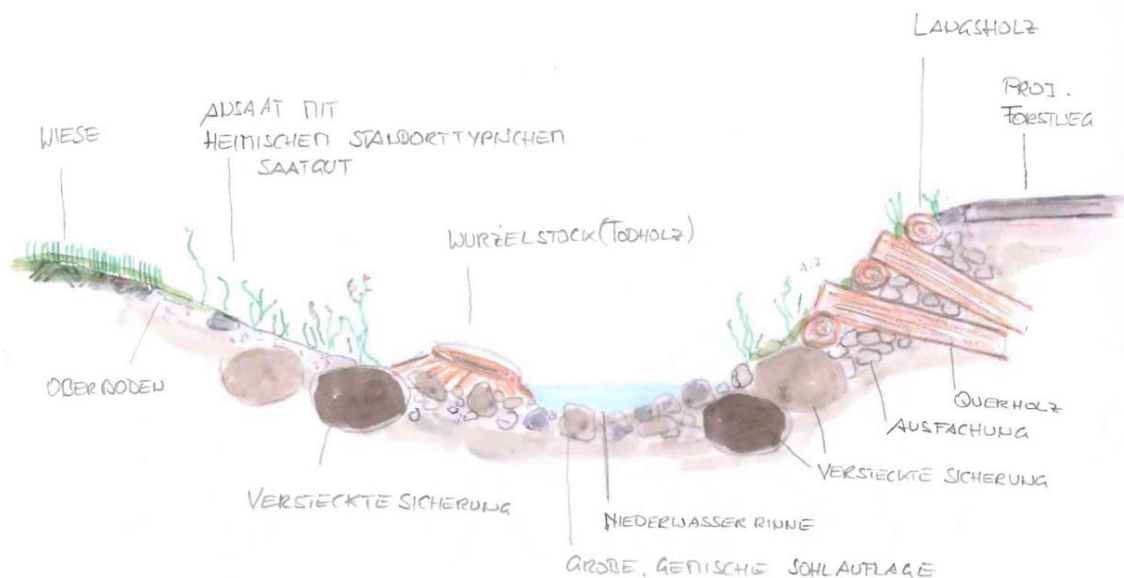 LÄNGSHOLZ
PROJ.
FORSTWEG
ANSAAT MIT
HEIMISCHEN STANDORTTYPISCHEN
SAATGUT
WIESE
WURZELSTOCK (TODHOLZ)
1:2
OBERBODEN
QUERHOLZ
AUSFACHUNG
VERSTECKTE SICHERUNG
VERSTECKTE SICHERUNG
NIEDERWASSER RINNE
GROBE, GEMISCHE SOHLAUFLAGE